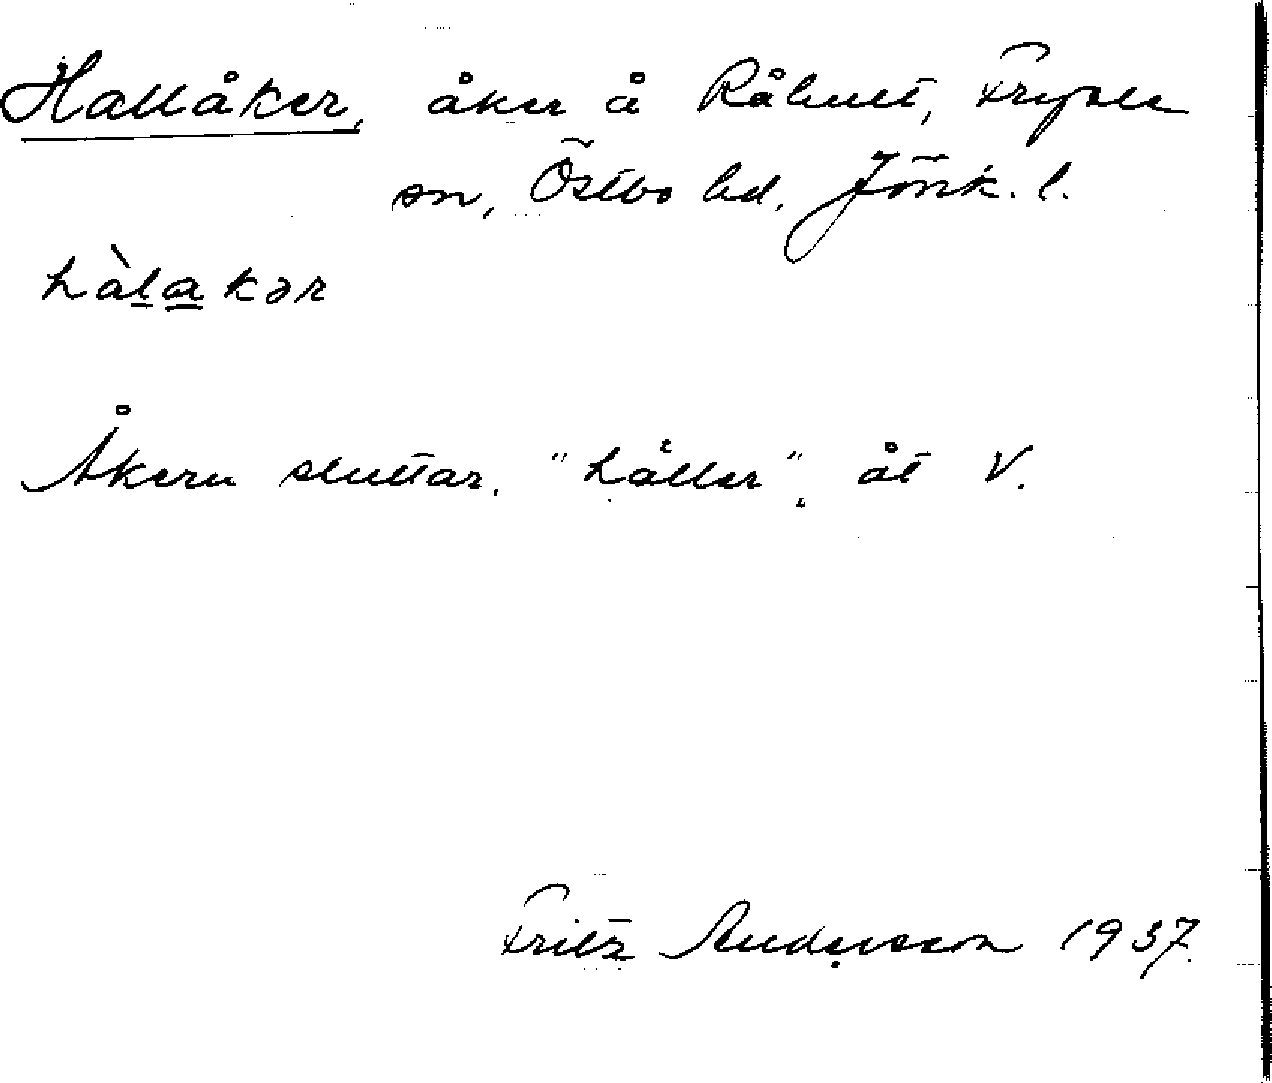 Hallåker, åker å Råhult, Fryele
sn, Östbo hd, Jönk. l.
hàlakər
Åkern sluttar, "håller", åt V.
Fritz Andersson 1937.